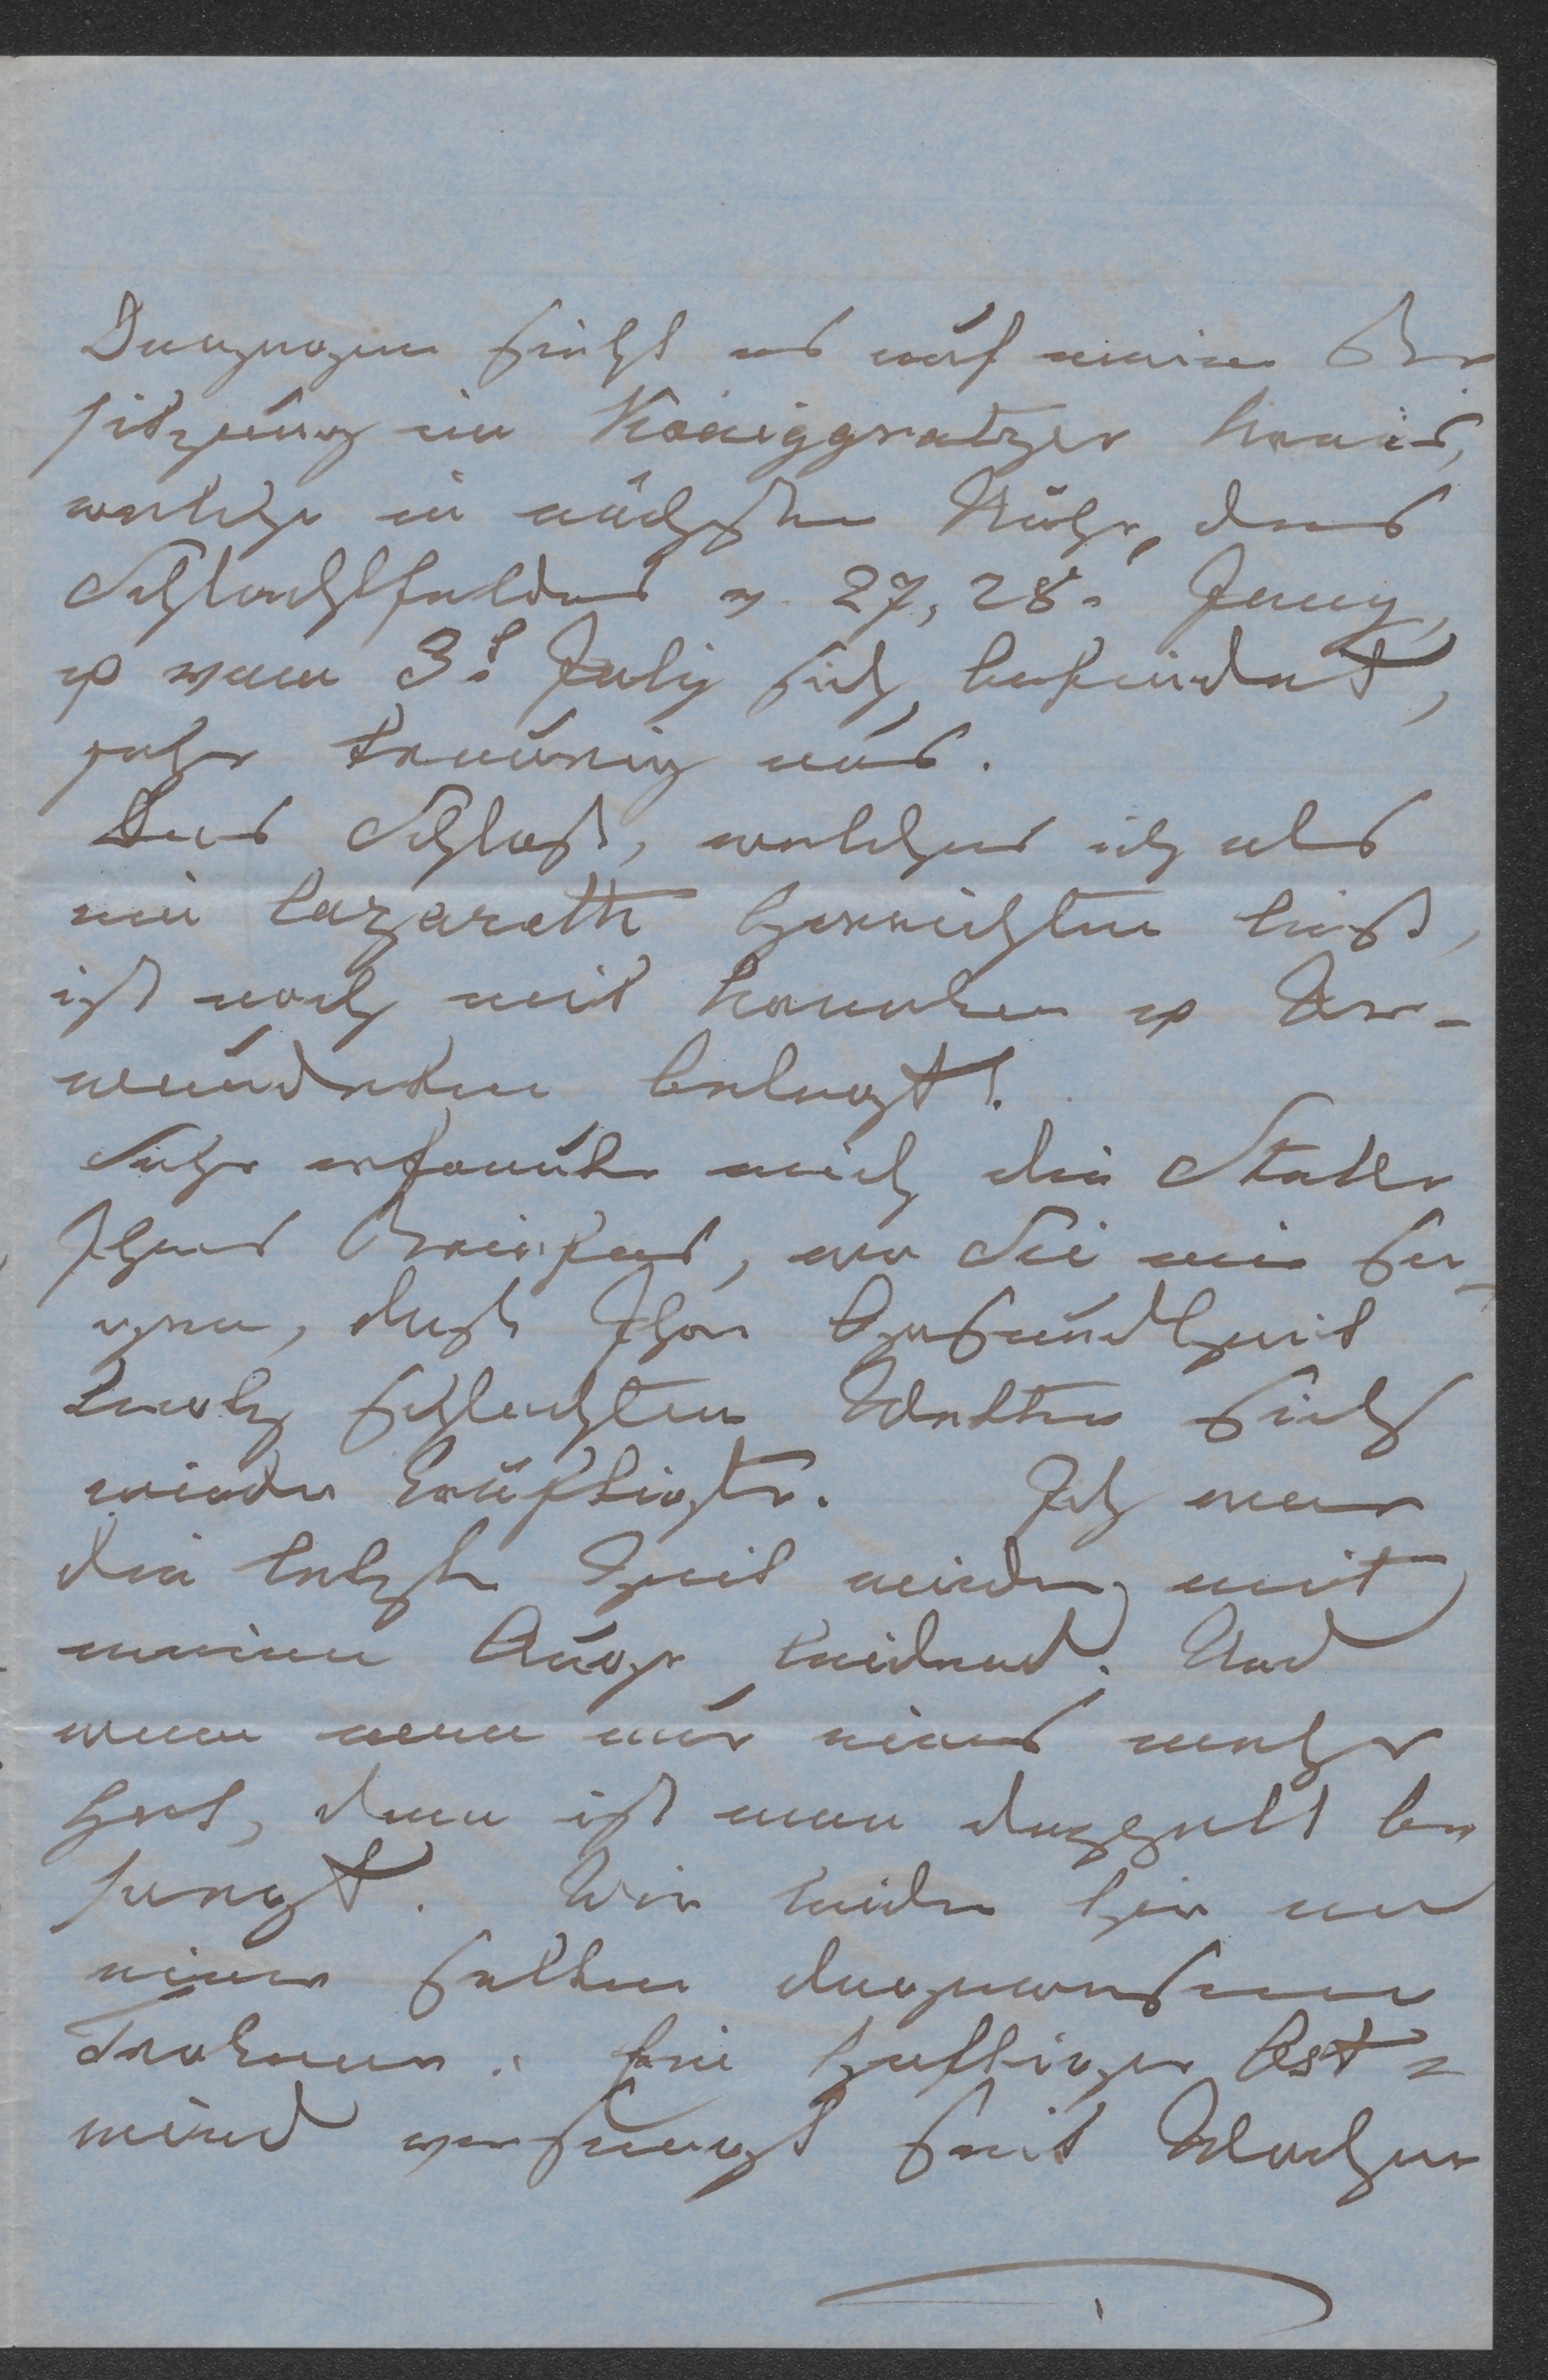 Dagegen sieht es auf meiner Be
sitzung im Königgratzer Kreis,
welche in nächster Nähe, des
Schlachtfeldes v. 27, 28. Juny,
u vom 3t July sich befindet,
sehr traurig aus.
Das Schloß, welches ich als
ein Lazareth herrichten ließ,
ist noch mit Kranken u Ver-
wundeten belegt.
Sehr erfreute mich die Stelle
Ihres Briefes, wo Sie mir sa
gen, daß Ihre Gesundheit
trotz schlechten Wetter sich
wieder kräftigte. Ich war
die letzte Zeit wieder mit
meinem Auge leidend. Und
wenn man nur eines mehr
hat, dann ist man doppelt be
sorgt. Wir leiden hier an
einer selten dagewesenen
Trokenen. Ein heftiger Ost=
wind versengt seit Wochen